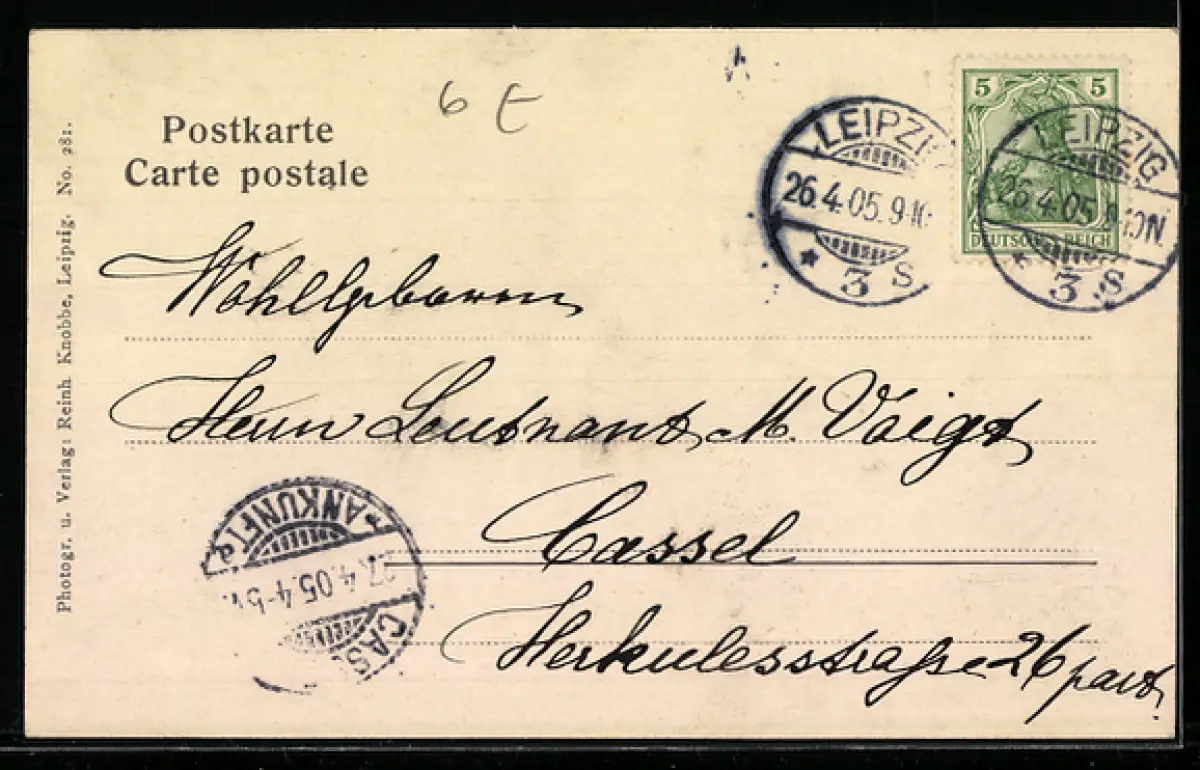 6 E
Postkarte
Carte postale
LEIPZIG
26.4.05.9-10N.
* 3 S
5 5
DEUTSCHES REICH
LEIPZIG
26.4.05.9-10N.
* 3 S
Wohlgeboren
Herrn Leutnant M. Voigt
Cassel
Herkulesstraße 26 part
ANKUNFT
27.4.05.4-5V.
CAS
Photogr. u. Verlag: Reinh. Knobbe, Leipzig. No. 281.